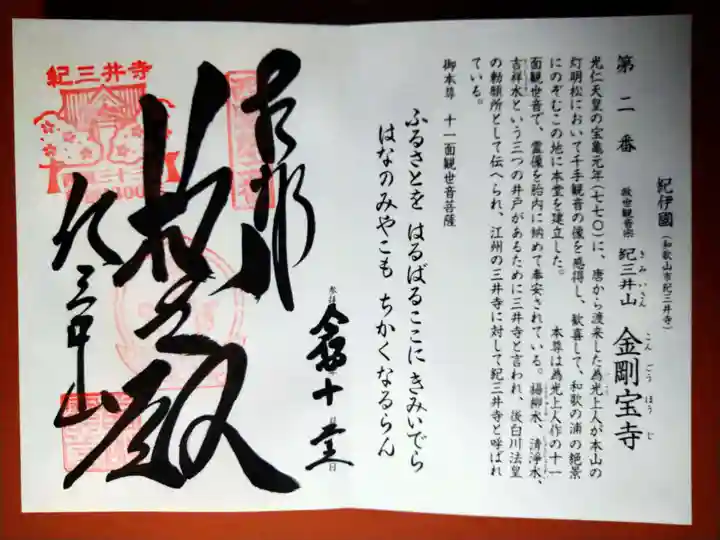 第二番
紀伊國（和歌山市紀三井寺）
救世観音宗 紀三井山 金剛宝寺
きみいさん こんごうほうじ
光仁天皇の宝亀元年（七七〇）に、唐から渡来した為光上人が本山の
灯明松において千手観音の像を感得し、歓喜して、和歌の浦の絶景
にのぞむこの地に本堂を建立した。　本尊は為光上人作の十一
面観世音で、霊像を胎内に納めて奉安されている。楊柳水、清浄水、
吉祥水という三つの井戸があるために三井寺と言われ、後白川法皇
の勅願所として伝へられ、江州の三井寺に対して紀三井寺と呼ばれ
ている。
御本尊　十一面観世音菩薩
ふるさとを　はるばるここに　きみいでら
はなのみやこも　ちかくなるらん
参拝
日
救世殿
紀三井山
紀三井寺